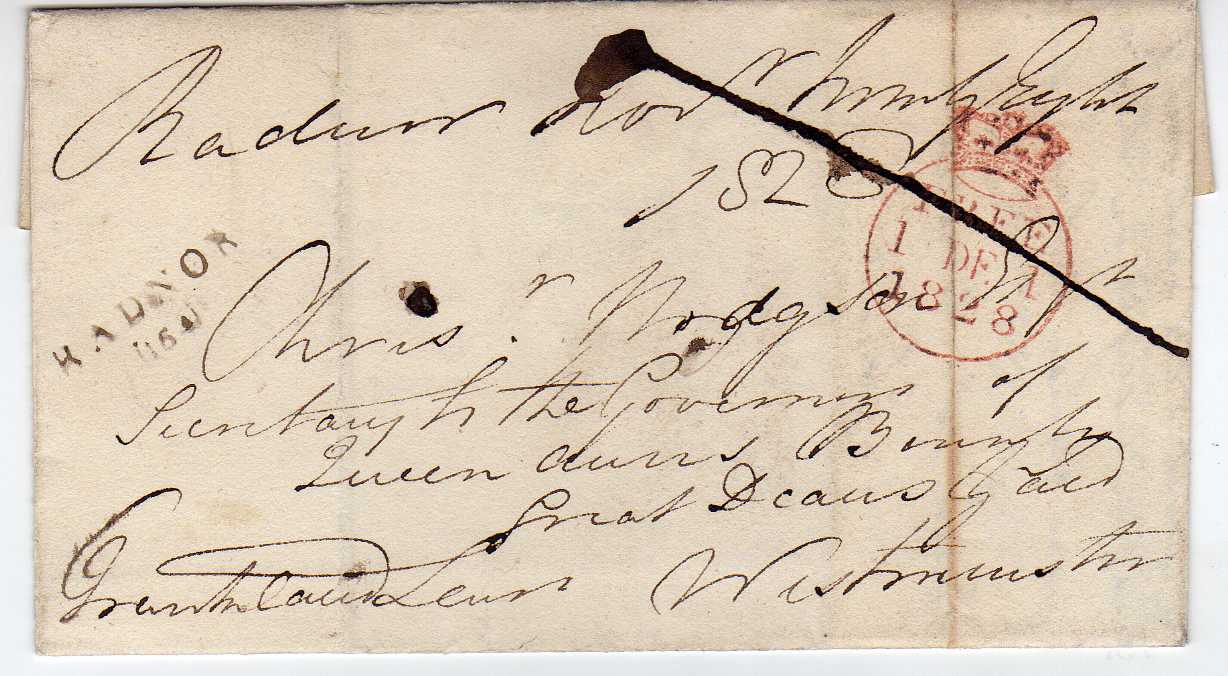 Radnor Nov.r twenty Eight
1828
FREE
1 DE 1
1828
RADNOR
Chris.r Hodgson Esqr
Secretary to the Governors of
Queen Anns Bounty
Great Deans Yard
Westminster
Frankland Lewis